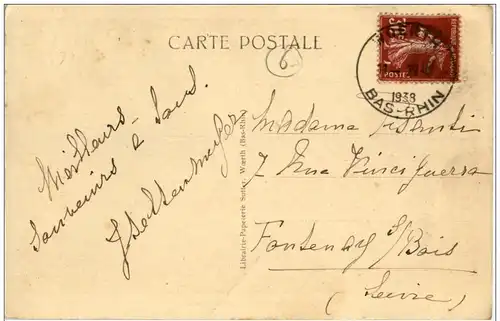 CARTE POSTALE
6
POSTES
1938
BAS-RHIN
Meilleurs
Souvenirs à tous.
Librairie-Papeterie Sutter, Wœrth (Bas-Rhin)
Madame
7 Rue Vinci guerra
Fontenay s/Bois
(Seine)